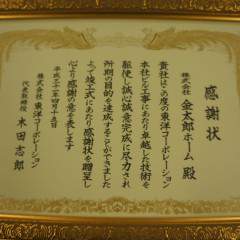 感謝状
株式会社 金太郎ホーム 殿
貴社はこの度の東洋コーポレーション
本社ビル工事にあたり卓越した技術を
駆使し誠心誠意完成に尽力され
所期の目的を達成することができました
よって竣工式にあたり感謝状を贈呈し
心より感謝の意を表します
平成二十二年四月十五日
株式会社 東洋コーポレーション
代表取締役 木田志郎